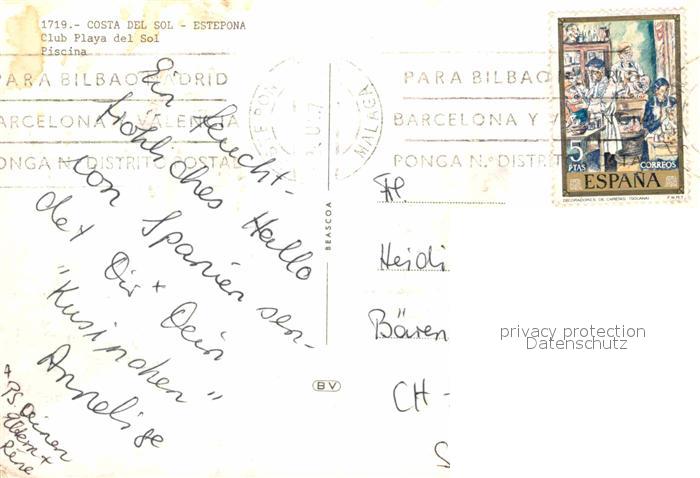 1719.- COSTA DEL SOL - ESTEPONA
Club Playa del Sol
Piscina
PARA BILBAO MADRID
BARCELONA Y VALENCIA
PONGA N.º DISTRITO POSTAL
ESTEPONA
MALAGA
PARA BILBAO MADRID
BARCELONA Y VALENCIA
PONGA N.º DISTRITO POSTAL
5
PTAS
CORREOS
ESPAÑA
DECORADORES DE CARETAS (SOLANA)
F.N.M.T.
Ein feucht-
fröhliches Hallo
von Spanien sen-
det Dir + Dein
"Kusinchen"
Annelise
+
PS. Deinen
Eltern +
René
BEASCOA
BV
Fl.
Heidi
Bären
CH-
S
privacy protection
Datenschutz